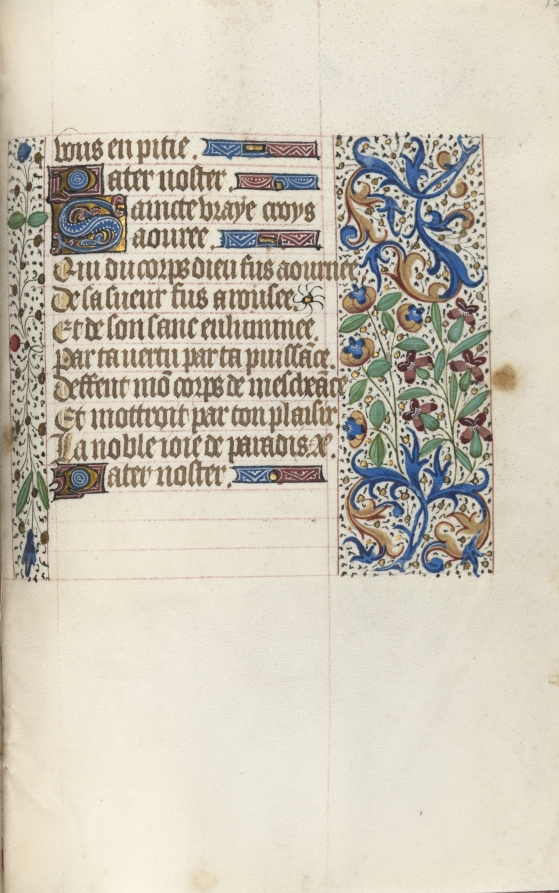 vous en pitie.
Pater noster.
Saincte vraye croys
aouree.
Qui du corps dieu fus aournee
De sa sueur fus arousee
Et de son sanc enluminee.
Par ta vertu par ta puissāce.
Deffent mō corps de mescheāce
Et mottroit par ton plaisir
La noble ioie de paradis
Pater noster.